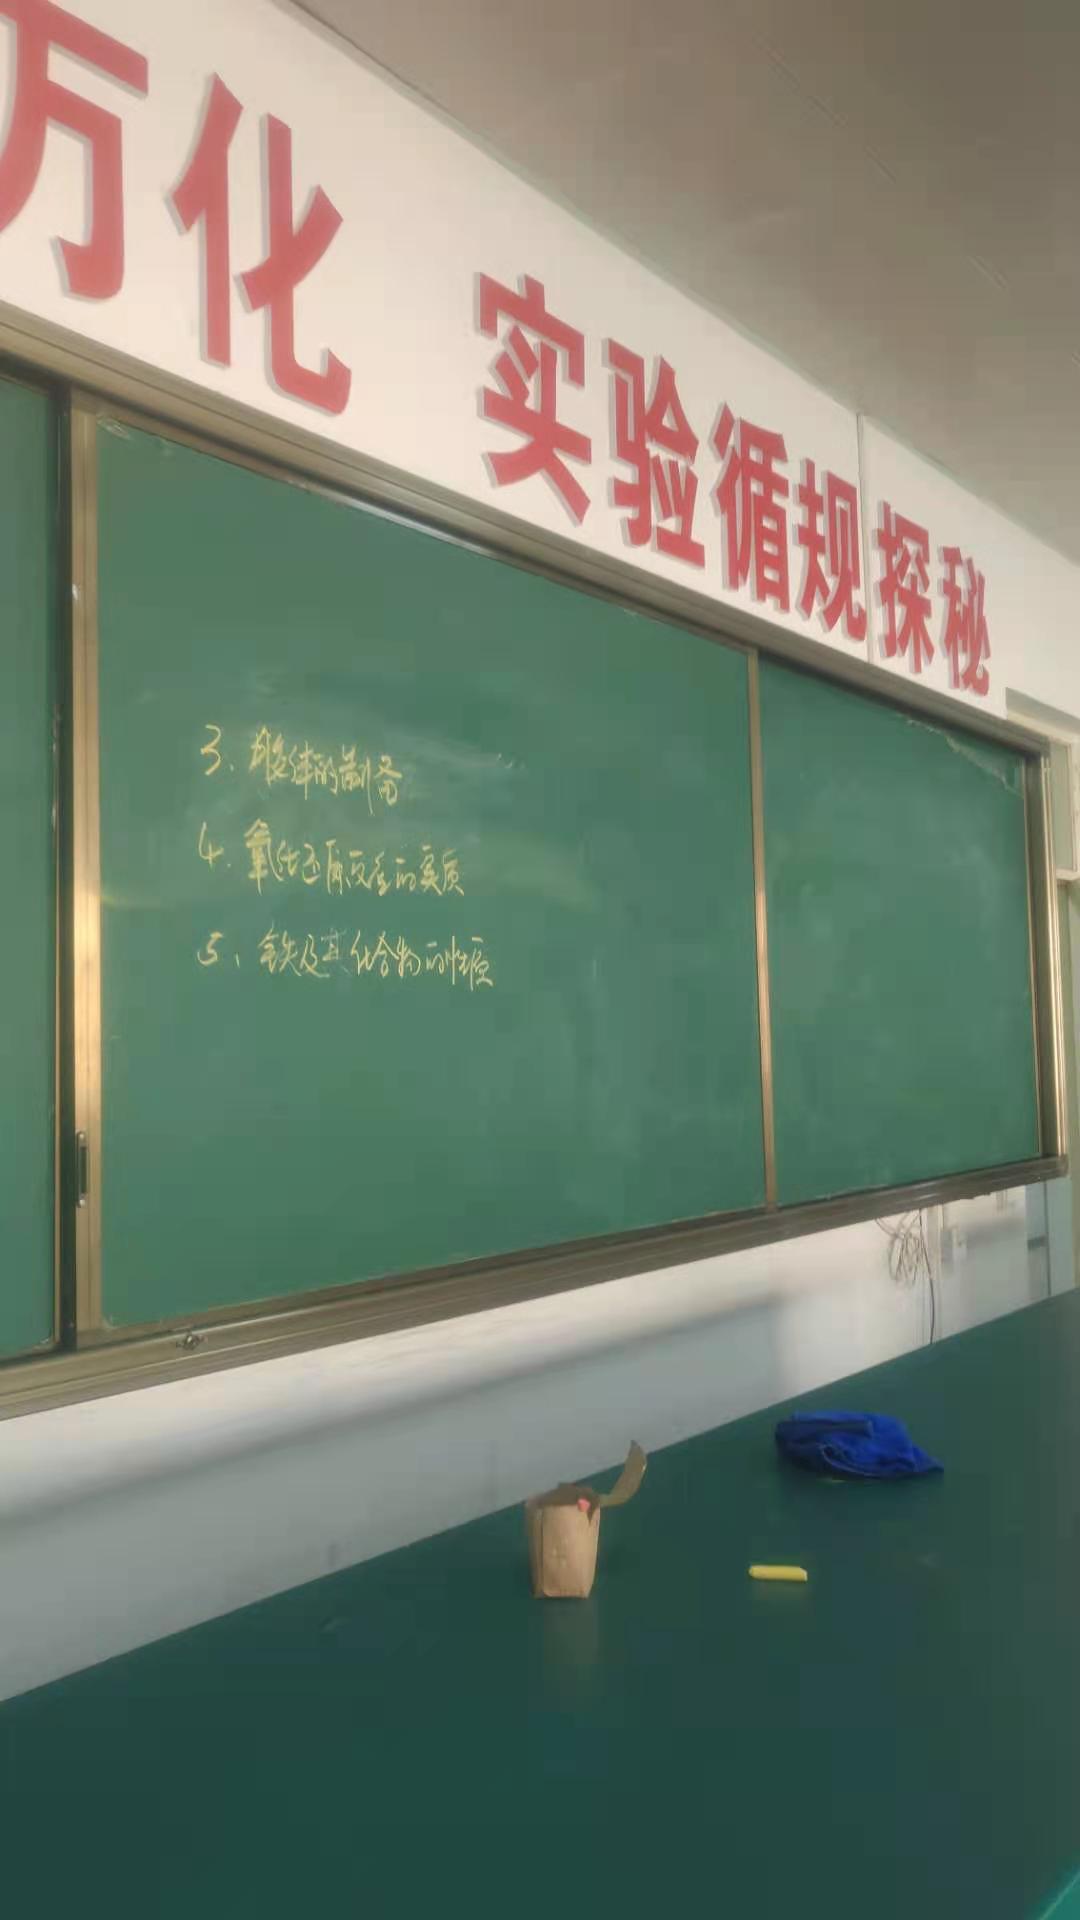 万化 实验循规探秘
3、胶体的制备
4.氧化还原反应的实质
5、铁及其化合物的性质